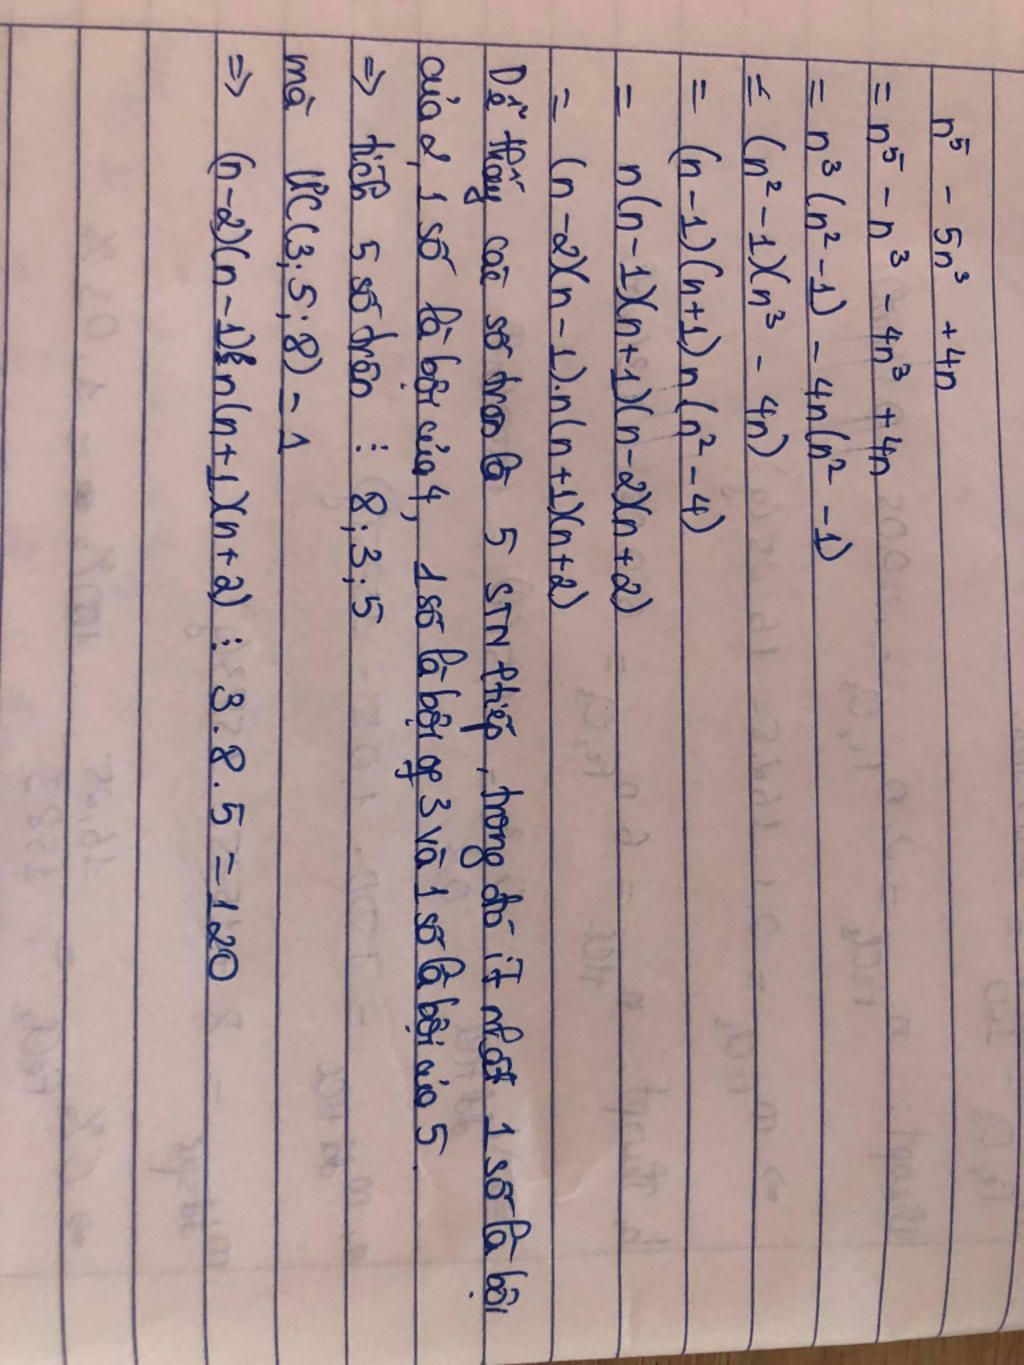 n⁵ - 5n³ + 4n
= n⁵ - n³ - 4n³ + 4n
= n³(n² - 1) - 4n(n² - 1)
= (n² - 1)(n³ - 4n)
= (n - 1)(n + 1) n (n² - 4)
= n(n - 1)(n + 1)(n - 2)(n + 2)
= (n - 2)(n - 1).n(n + 1)(n + 2)
Dễ thấy các số trên là 5 STN tiếp, trong đó ít nhất 1 số là bội
của 2, 1 số là bội của 4, 1 số là bội of 3 và 1 số là bội của 5
=> tích 5 số trên ⋮ 8; 3; 5
mà (3; 5; 8) = 1
=> (n - 2)(n - 1) n(n + 1)(n + 2) ⋮ 3.8.5 = 120